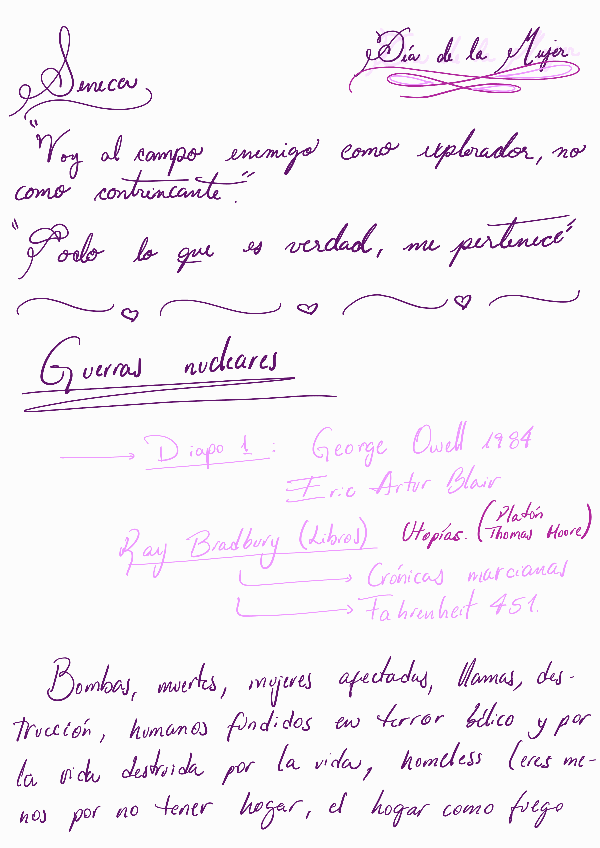 Seneca
Día de la Mujer
"Voy al campo enemigo como explorador, no
como contrincante".
"Todo lo que es verdad, me pertenece"
Guerras nucleares
Diapo 1: George Owell 1984
Eric Artur Blair
Ray Bradbury (Libros) Utopías. (Platón
Thomas Moore)
Crónicas marcianas
Fahrenheit 451.
Bombas, muertes, mujeres afectadas, llamas, des-
trucción, humanos fundidos en terror bélico y por
la vida destruida por la vida, homeless (eres me-
nos por no tener hogar, el hogar como fuego